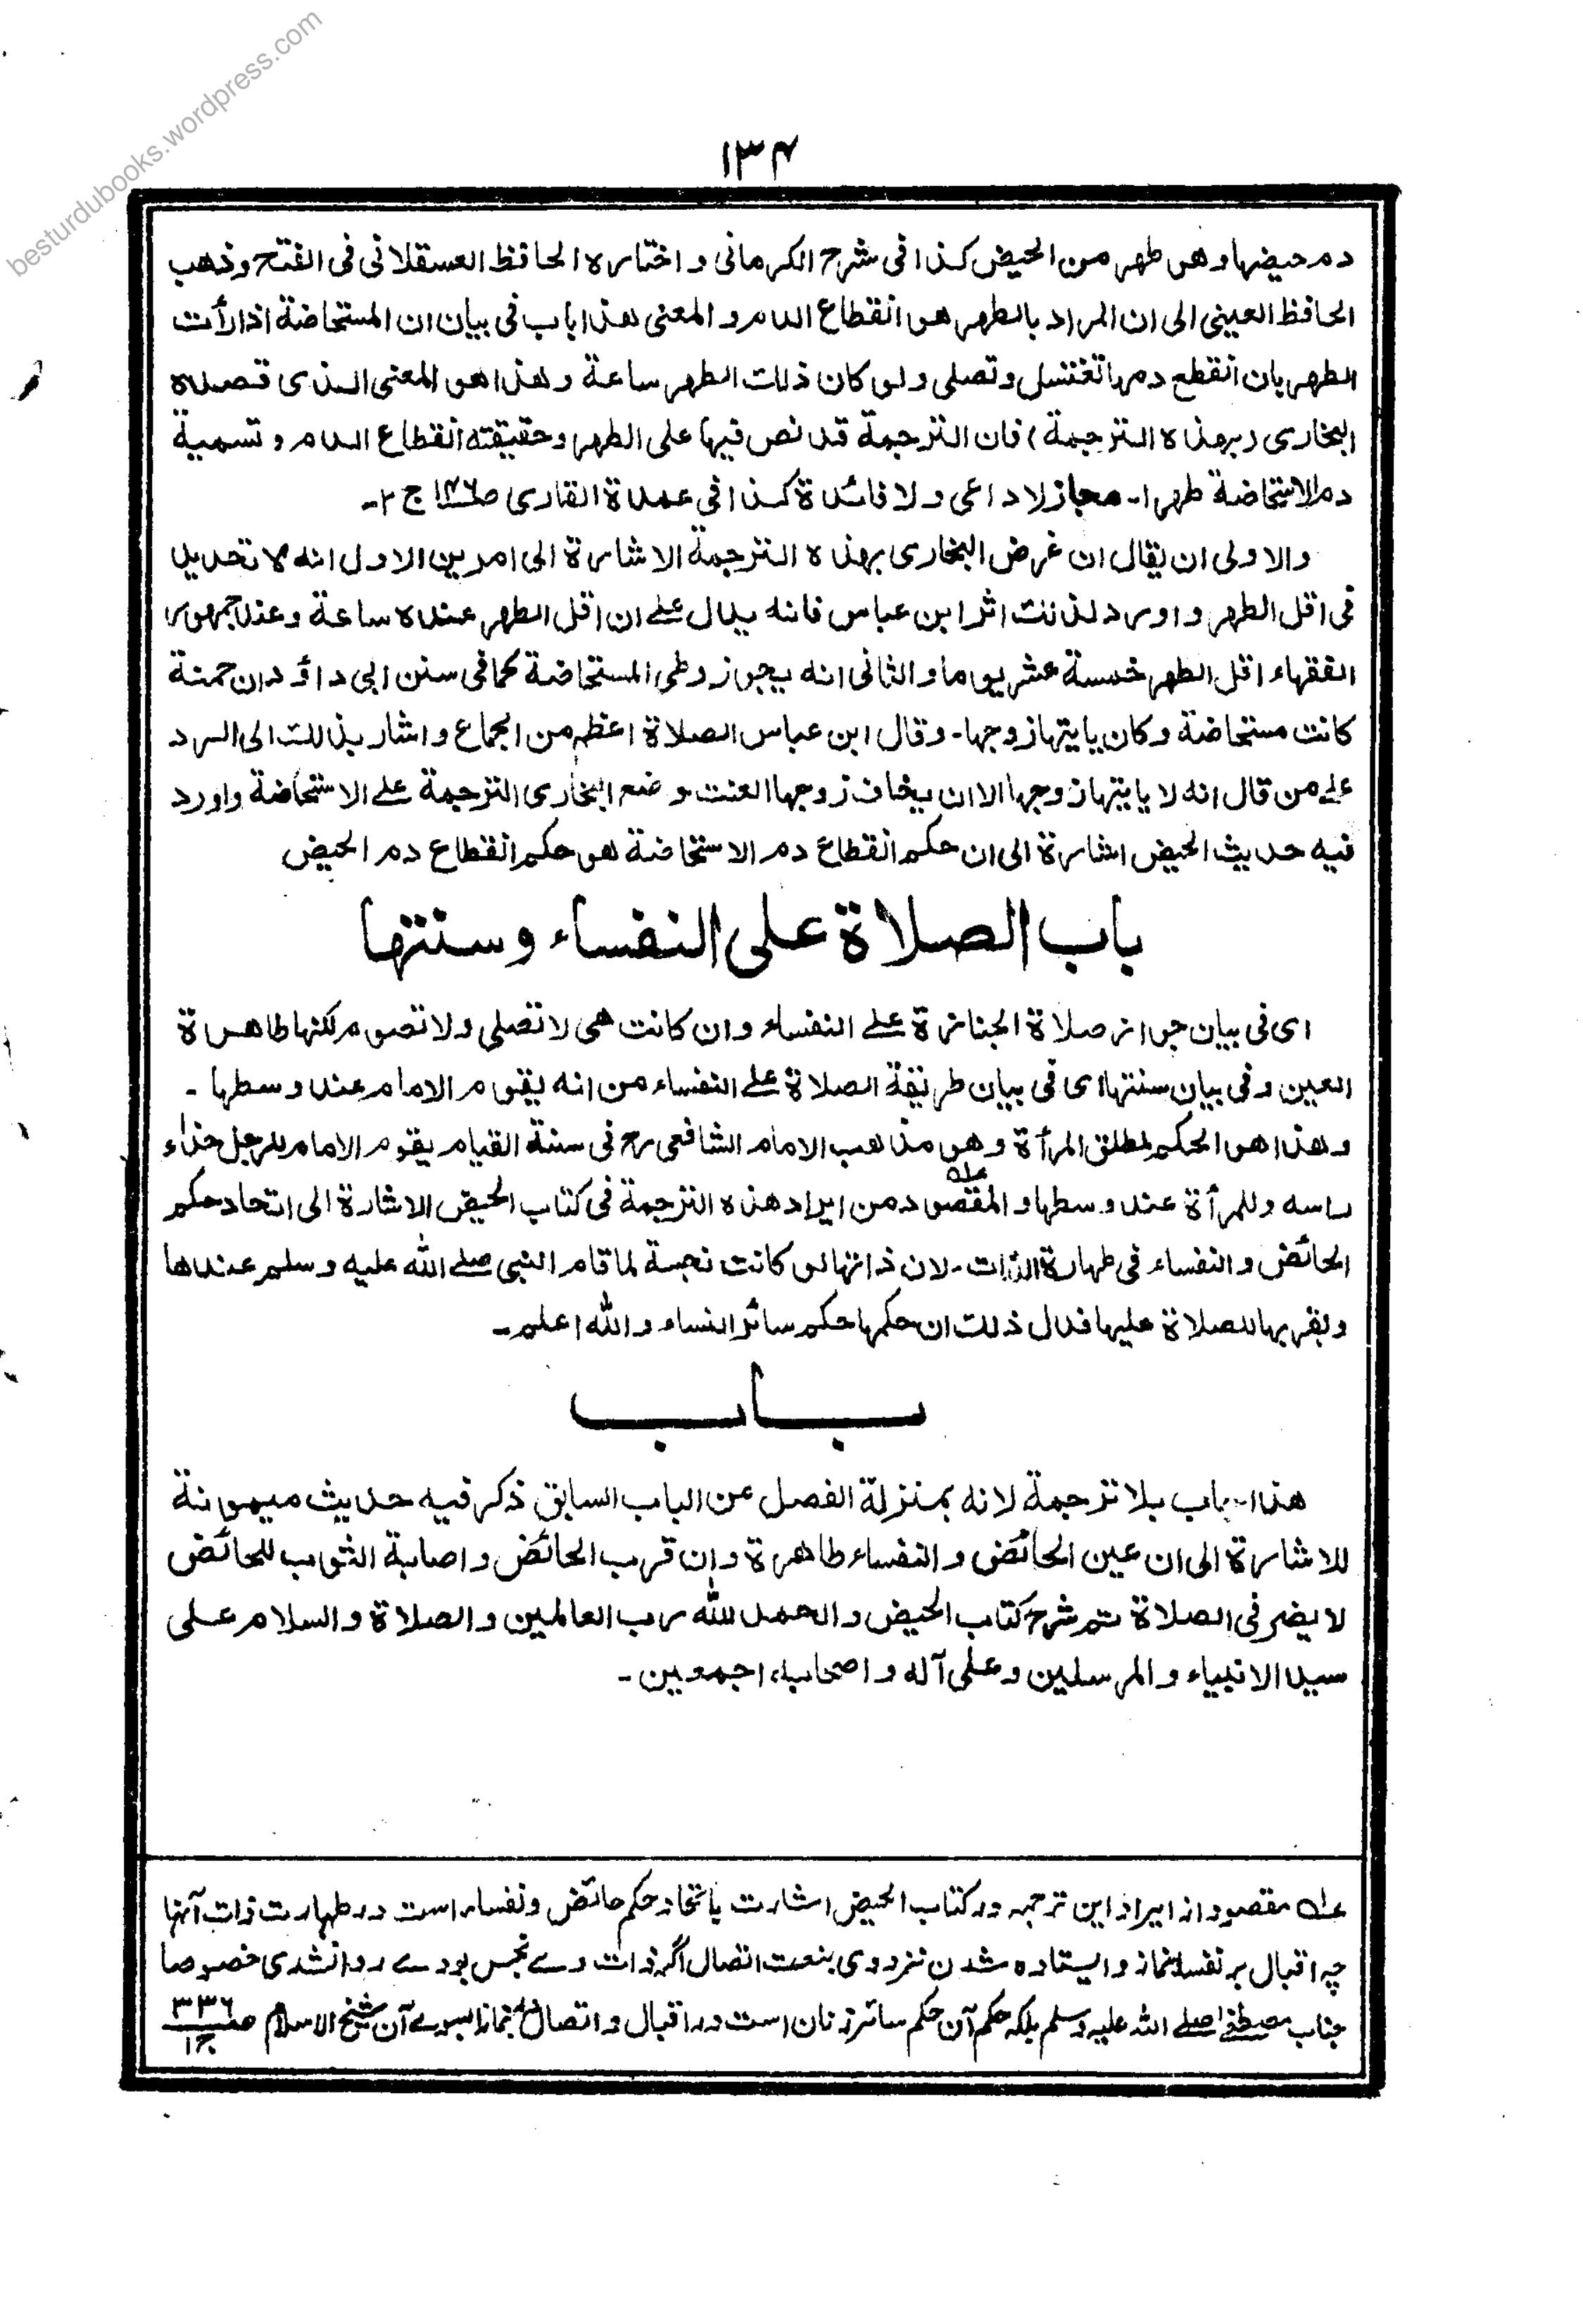 besturdubooks.wordpress.com
۱۳۴
دم حيضها وهو طهر من الحيض كذا في شرح الكرماني و اختاره الحافظ العسقلاني في الفتح وذهب
الحافظ العيني الى ان المراد بالطهر هو انقطاع الدم و المعنى هذا باب في بيان ان المستحاضة اذا رأت
الطهر بان انقطع دمها تغتسل وتصلي ولو كان ذلك الطهر ساعة وهذا هو المعنى الذى قصده
البخارى (بهذه الترجمة) فان الترجمة قد نص فيها على الطهر وحقيقته انقطاع الدم وتسمية
دم الاستحاضة طهرا - مجاز لا داعى ولا فائدة كذا في عمدة القارى ص۱۴۶ ج ۲-
والاولى ان يقال ان غرض البخارى بهذه الترجمة الاشارة الى امرين الاول انه لا تحديد
في اقل الطهر و اورد لذلك اثر ابن عباس فانه يدل على ان اقل الطهر عنده ساعة وعند جمهور
الفقهاء اقل الطهر خمسة عشر يوما و الثانى انه يجوز وطى المستحاضة كما في سنن ابى داؤد ان حمنة
كانت مستحاضة وكان يا يتها زوجها - وقال ابن عباس الصلاة اعظم من الجماع و اشار بذلك الى الرد
على من قال انه لا يا يتها زوجها الا ان يخاف زوجها العنت وضع البخارى الترجمة على الاستحاضة و اورد
فيه حديث الحيض اشارة الى ان حكم انقطاع دم الاستحاضة هو حكم انقطاع دم الحيض
باب الصلاة على النفساء وسنتها
اى في بيان جواز صلاة الجنازة على النفساء وان كانت هى لا تصلى ولا تصوم لكنها طاهرة
العين وفى بيان سنتها اى فى بيان طريقة الصلاة على النفساء من انه يقوم الامام عند وسطها -
وهذا هو الحكم لمطلق المرأة وهو مذهب الامام الشافعى رح فى سنة القيام يقوم الامام للرجل حذاء
راسه وللمرأة عند وسطها و المقصود عله من ايراد هذه الترجمة فى كتاب الحيض الاشارة الى اتحاد حكم
الحائض و النفساء فى طهارة الذات - لان ذاتها لو كانت نجسة لما قام النبى صلے الله عليه وسلم عندها
وبقربها للصلاة عليها فدل ذلك ان حكمها حكم سائر النساء و الله اعلم -
بــاب
هذا باب بلا ترجمة لانه بمنزلة الفصل عن الباب السابق ذكر فيه حديث ميمونة
للاشارة الى ان عين الحائض و النفساء طاهرة وان قرب الحائض و اصابة الثوب للحائض
لا يضر فى الصلاة تم شرح كتاب الحيض و الحمد لله رب العالمين و الصلاة و السلام على
سيد الانبياء و المرسلين وعلى آله و اصحابه اجمعين -
عله مقصود از ایراد این ترجمہ در کتاب الحیض اشارت باتحاد حکم حائض ونفساء است در طہارت ذات آنہا
چہ اقبال بر نفساء بنماز و ایستادہ شدن نزد وی بنعت اتصال اگر ذات وے نجس بودے روا نشدی خصوصا
جناب مصطفےٰ صلے اللہ علیہ وسلم بلکہ حکم آن حکم سائر زنان است در اقبال و اتصال بنماز بسوے آن شیخ الاسلام ص۳۳۶ ج۱